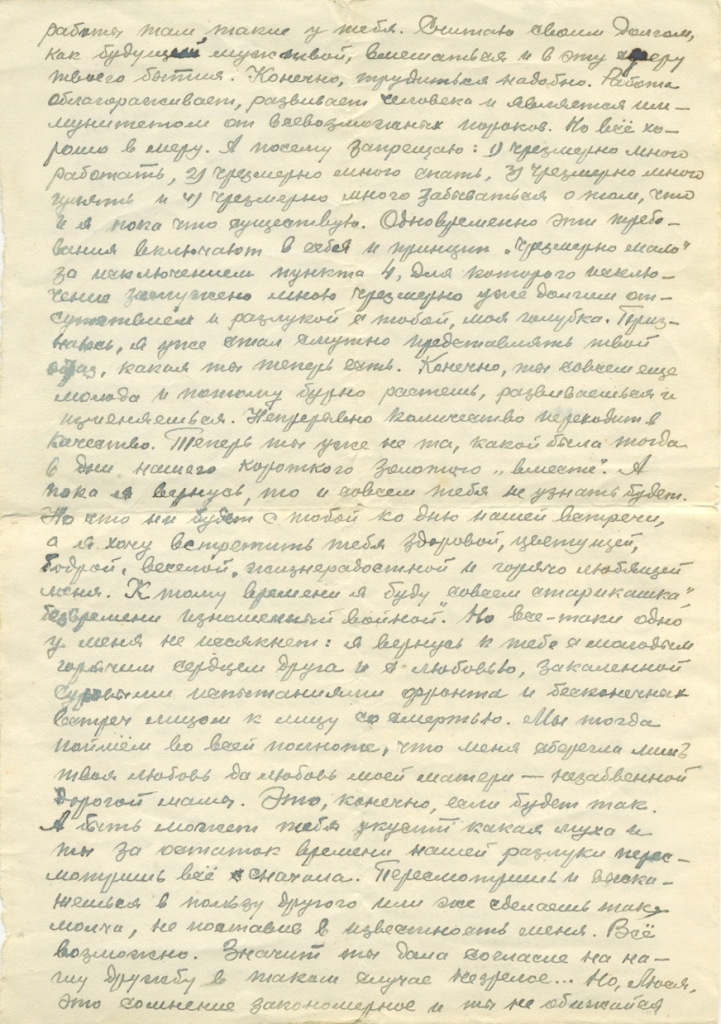 работы там, такие у тебя. Считаю своим долгом,
как будущий муж твой, вмешаться и в эту сферу
твоего бытия. Конечно, трудиться надобно. Работа
облагораживает, развивает человека и является им-
мунитетом от всевозможных пороков. Но всё хо-
рошо в меру. А посему запрещаю: 1) чрезмерно много
работать, 2) чрезмерно много спать, 3) чрезмерно много
гулять и 4) чрезмерно много забываться о том, что
и я пока что существую. Одновременно эти требо-
вания включают в себя и принцип „чрезмерно мало"
за исключением пункта 4, для которого исклю-
чение заслужено мною чрезмерно уже долгим от-
сутствием и разлукой с тобой, моя голубка. Приз-
наюсь, я уже стал смутно представлять твой
образ, какая ты теперь есть. Конечно, ты совсем еще
молода и потому бурно растешь, развиваешься и
изменяешься. Непрерывно количество переходит в
качество. Теперь ты уже не та, какой была тогда
в дни нашего короткого золотого „вместе". А
пока я вернусь, то и совсем тебя не узнать будет.
Но что ни будет с тобой ко дню нашей встречи,
а я хочу встретить тебя здоровой, цветущей,
бодрой, веселой, жизнерадостной и горячо любящей
меня. К тому времени я буду совсем старикашка"
безвремени изношенный войной". Но все-таки одно
у меня не иссякнет: я вернусь к тебе с молодым
горячим сердцем друга и с любовью, закаленной
суровыми испытаниями фронта и бесконечных
встреч лицом к лицу со смертью. Мы тогда
поймём во всей полноте, что меня сберегла лишь
твоя любовь да любовь моей матери — незабвенной
дорогой мамы. Это, конечно, если будет так.
А быть может тебя укусит какая муха и
ты за остаток времени нашей разлуки перес-
мотришь всё сначала. Пересмотришь и выска-
жешься в пользу другого или же сделаешь так
молча, не поставив в известность меня. Всё
возможно. Значит ты дала согласие на на-
шу дружбу в таком случае незрелое... Но, Люся,
это сомнение закономерное и ты не обижайся